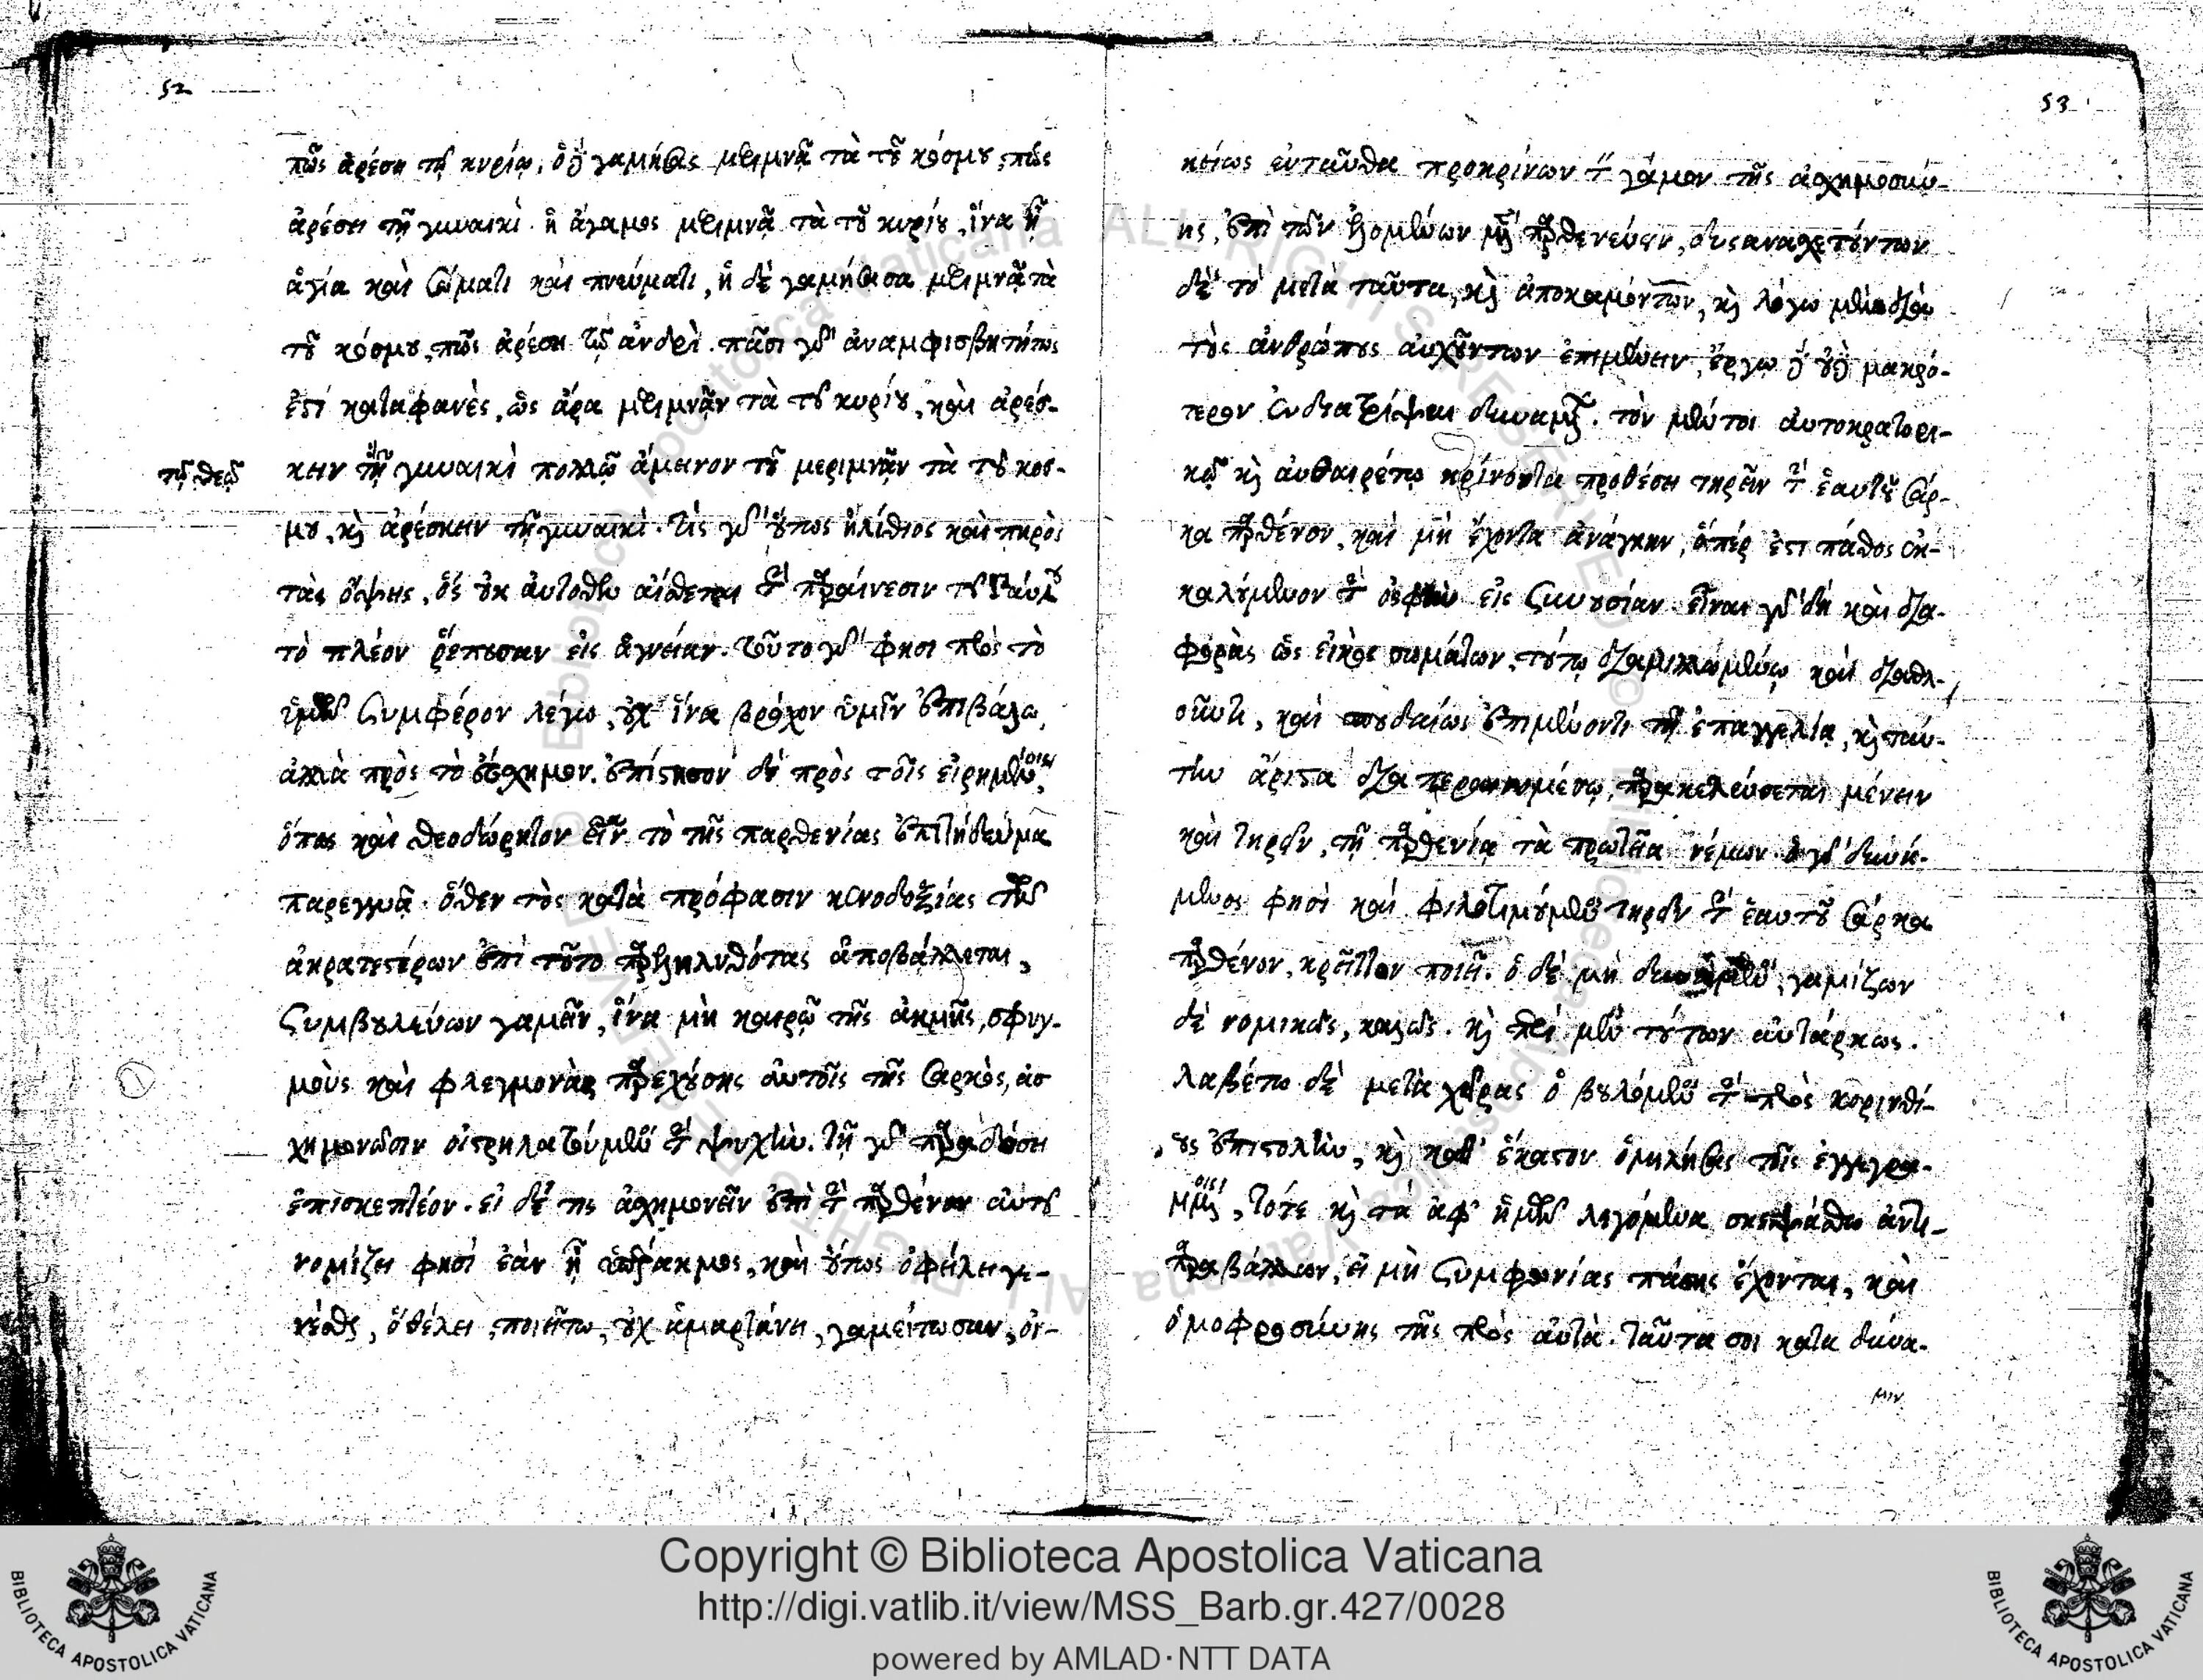 52
πῶς ἀρέσει τῷ κυρίῳ, ὁ δὲ γαμήσας μεριμνᾷ τὰ τοῦ κόσμου, πῶς
ἀρέσει τῇ γυναικί. ἡ ἄγαμος μεριμνᾷ τὰ τοῦ κυρίου, ἵνα ᾖ
ἁγία καὶ σώματι καὶ πνεύματι, ἡ δὲ γαμήσασα μεριμνᾷ τὰ
τοῦ κόσμου, πῶς ἀρέσει τῷ ἀνδρὶ. πᾶσι γὰρ ἀναμφισβητήτως
ἐστὶ καταφανὲς, ὡς ἄρα μεριμνᾶν τὰ τοῦ κυρίου, καὶ ἀρέσ-
τῷ θεῷ
κειν τῇ γυναικὶ πολλῷ ἄμεινον τοῦ μεριμνᾶν τὰ τοῦ κοσ-
μου, καὶ ἀρέσκειν τῇ γυναικὶ. τίς γὰρ οὕτως ἠλίθιος καὶ πηρὸς
τὰς ὄψεις, ὃς οὐκ αὐτόθεν αἰσθεται τὴν παραίνεσιν τοῦ Παύλου
τὸ πλέον ῥέπουσαν εἰς ἁγνείαν. τοῦτο γὰρ φησι πρὸς τὸ
ὑμῶν συμφέρον λέγω, οὐχ ἵνα βρόχον ὑμῖν ἐπιβάλω,
ἀλλὰ πρὸς τὸ εὔσχημον. ἐπίστησον δὲ πρὸς τοῖς εἰρημένοις,
ὅπως καὶ θεοδώρητον εἶναι τὸ τῆς παρθενίας ἐπιτήδευμα
παρεγγυᾷ. ὅθεν τοὺς κατὰ πρόφασιν κενοδοξίας τῶν
ἀκρατεστέρων ἐπὶ τοῦτο παρεληλυθότας ἀποβάλλεται,
συμβουλεύων γαμεῖν, ἵνα μὴ καιρῷ τῆς ἀκμῆς, σφυγ-
μοὺς καὶ φλεγμονὰς παρεχούσης αὐτοῖς τῆς σαρκὸς, ἀσ
χημονῶσιν οἰστρηλατούμενοι τὴν ψυχὴν. τῇ γὰρ παραδόσει
ἐπισκεπτέον. εἰ δέ τις ἀσχημονεῖν ἐπὶ τὴν παρθένον αὐτοῦ
νομίζει φησὶ ἐὰν ᾖ ὑπέρακμος, καὶ οὕτως ὀφείλει γε-
νέσθαι, ὃ θέλει ποιείτω, οὐχ ἁμαρτάνει, γαμείτωσαν, οἰ-
53
κείως ἐνταῦθα προκρίνων τὸν γάμον τῆς ἀσχημοσύ-
νης, ἐπὶ τῶν ἑλομένων μὲν παρθενεύειν, δυσανασχετούντων
δὲ τὸ μετὰ ταῦτα, καὶ ἀποκαμόντων, καὶ λόγω μὲν διὰ
τοὺς ἀνθρώπους αὐχούντων ἐπιμένειν, ἔργω δὲ οὐδὲ μακρό-
τερον ἐνδιατρίψαι δυναμένων. τὸν μέντοι αὐτοκρατορι-
κῷ καὶ αὐθαιρέτῳ κρίνοντα προθέσει τηρεῖν τὴν ἑαυτοῦ σάρ-
κα παρθένον, καὶ μὴ ἔχοντα ἀνάγκην, ὅπερ ἐστι πάθος ἐκ-
καλούμενον τὴν ὀσφὺν εἰς συνουσίαν. εἶναι γὰρ δὴ καὶ δια-
φορὰς ὡς εἰκὸς σωμάτων, τούτῳ διαμιλλωμένῳ καὶ διαθλ-
οῦντι, καὶ σπουδαίως ἐπιμένοντι τῇ ἐπαγγελίᾳ, καὶ ταύ-
την ἄριστα διαπεραινομένῳ, παρακελεύσεται μένειν
καὶ τηρεῖν, τῇ παρθενίᾳ τὰ πρωτεῖα νέμων. ὁ γὰρ δυνά-
μενος φησὶ καὶ φιλοτιμούμενος τηρεῖν τὴν ἑαυτοῦ σάρκα
παρθένον, κρεῖττον ποιεῖ. ὁ δὲ μὴ δυνάμενος, γαμίζων
δὲ νομικῶς, καλῶς. καὶ περὶ μὲν τούτων αὐτάρκως.
λαβέτω δὲ μετὰ χεῖρας ὁ βουλόμενος τὴν πρὸς κορινθί-
ους ἐπιστολὴν, καὶ καθ' ἕκαστον ὁμιλήσας τοῖς ἐγγεγρα-
μμένοις, τότε καὶ τὰ ἀφ' ἡμῶν λεγόμενα σκεψάσθω ἀντι-
παραβάλλων, εἰ μὴ συμφωνίας πάσης ἔχονται, καὶ
ὁμοφροσύνης τῆς πρὸς αὐτὰ. ταῦτα σοι κατα δύνα-
μιν
Copyright © Biblioteca Apostolica Vaticana
http://digi.vatlib.it/view/MSS_Barb.gr.427/0028
powered by AMLAD·NTT DATA
BIBLIOTECA APOSTOLICA VATICANA
BIBLIOTECA APOSTOLICA VATICANA